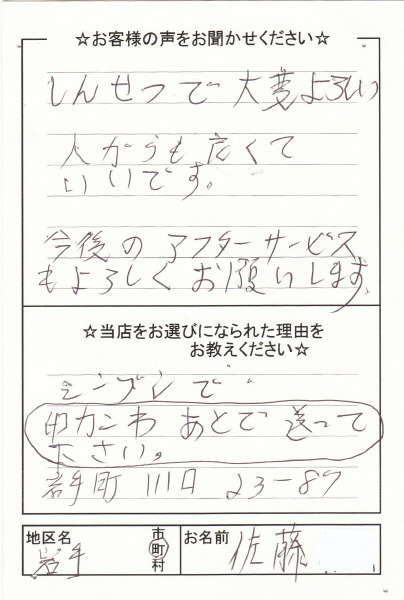 ☆お客様の声をお聞かせください☆
しんせつで 大変よろしい
人がらも 広くて
いいです。
今後の アフターサービス
もよろしく お願いします。
☆当店をお選びになられた理由を
お教えください☆
シンブンで
印カンわ あとで 送って
下さい。
岩手町 川口 23-87
地区名
岩手
市
町
村
お名前
佐藤